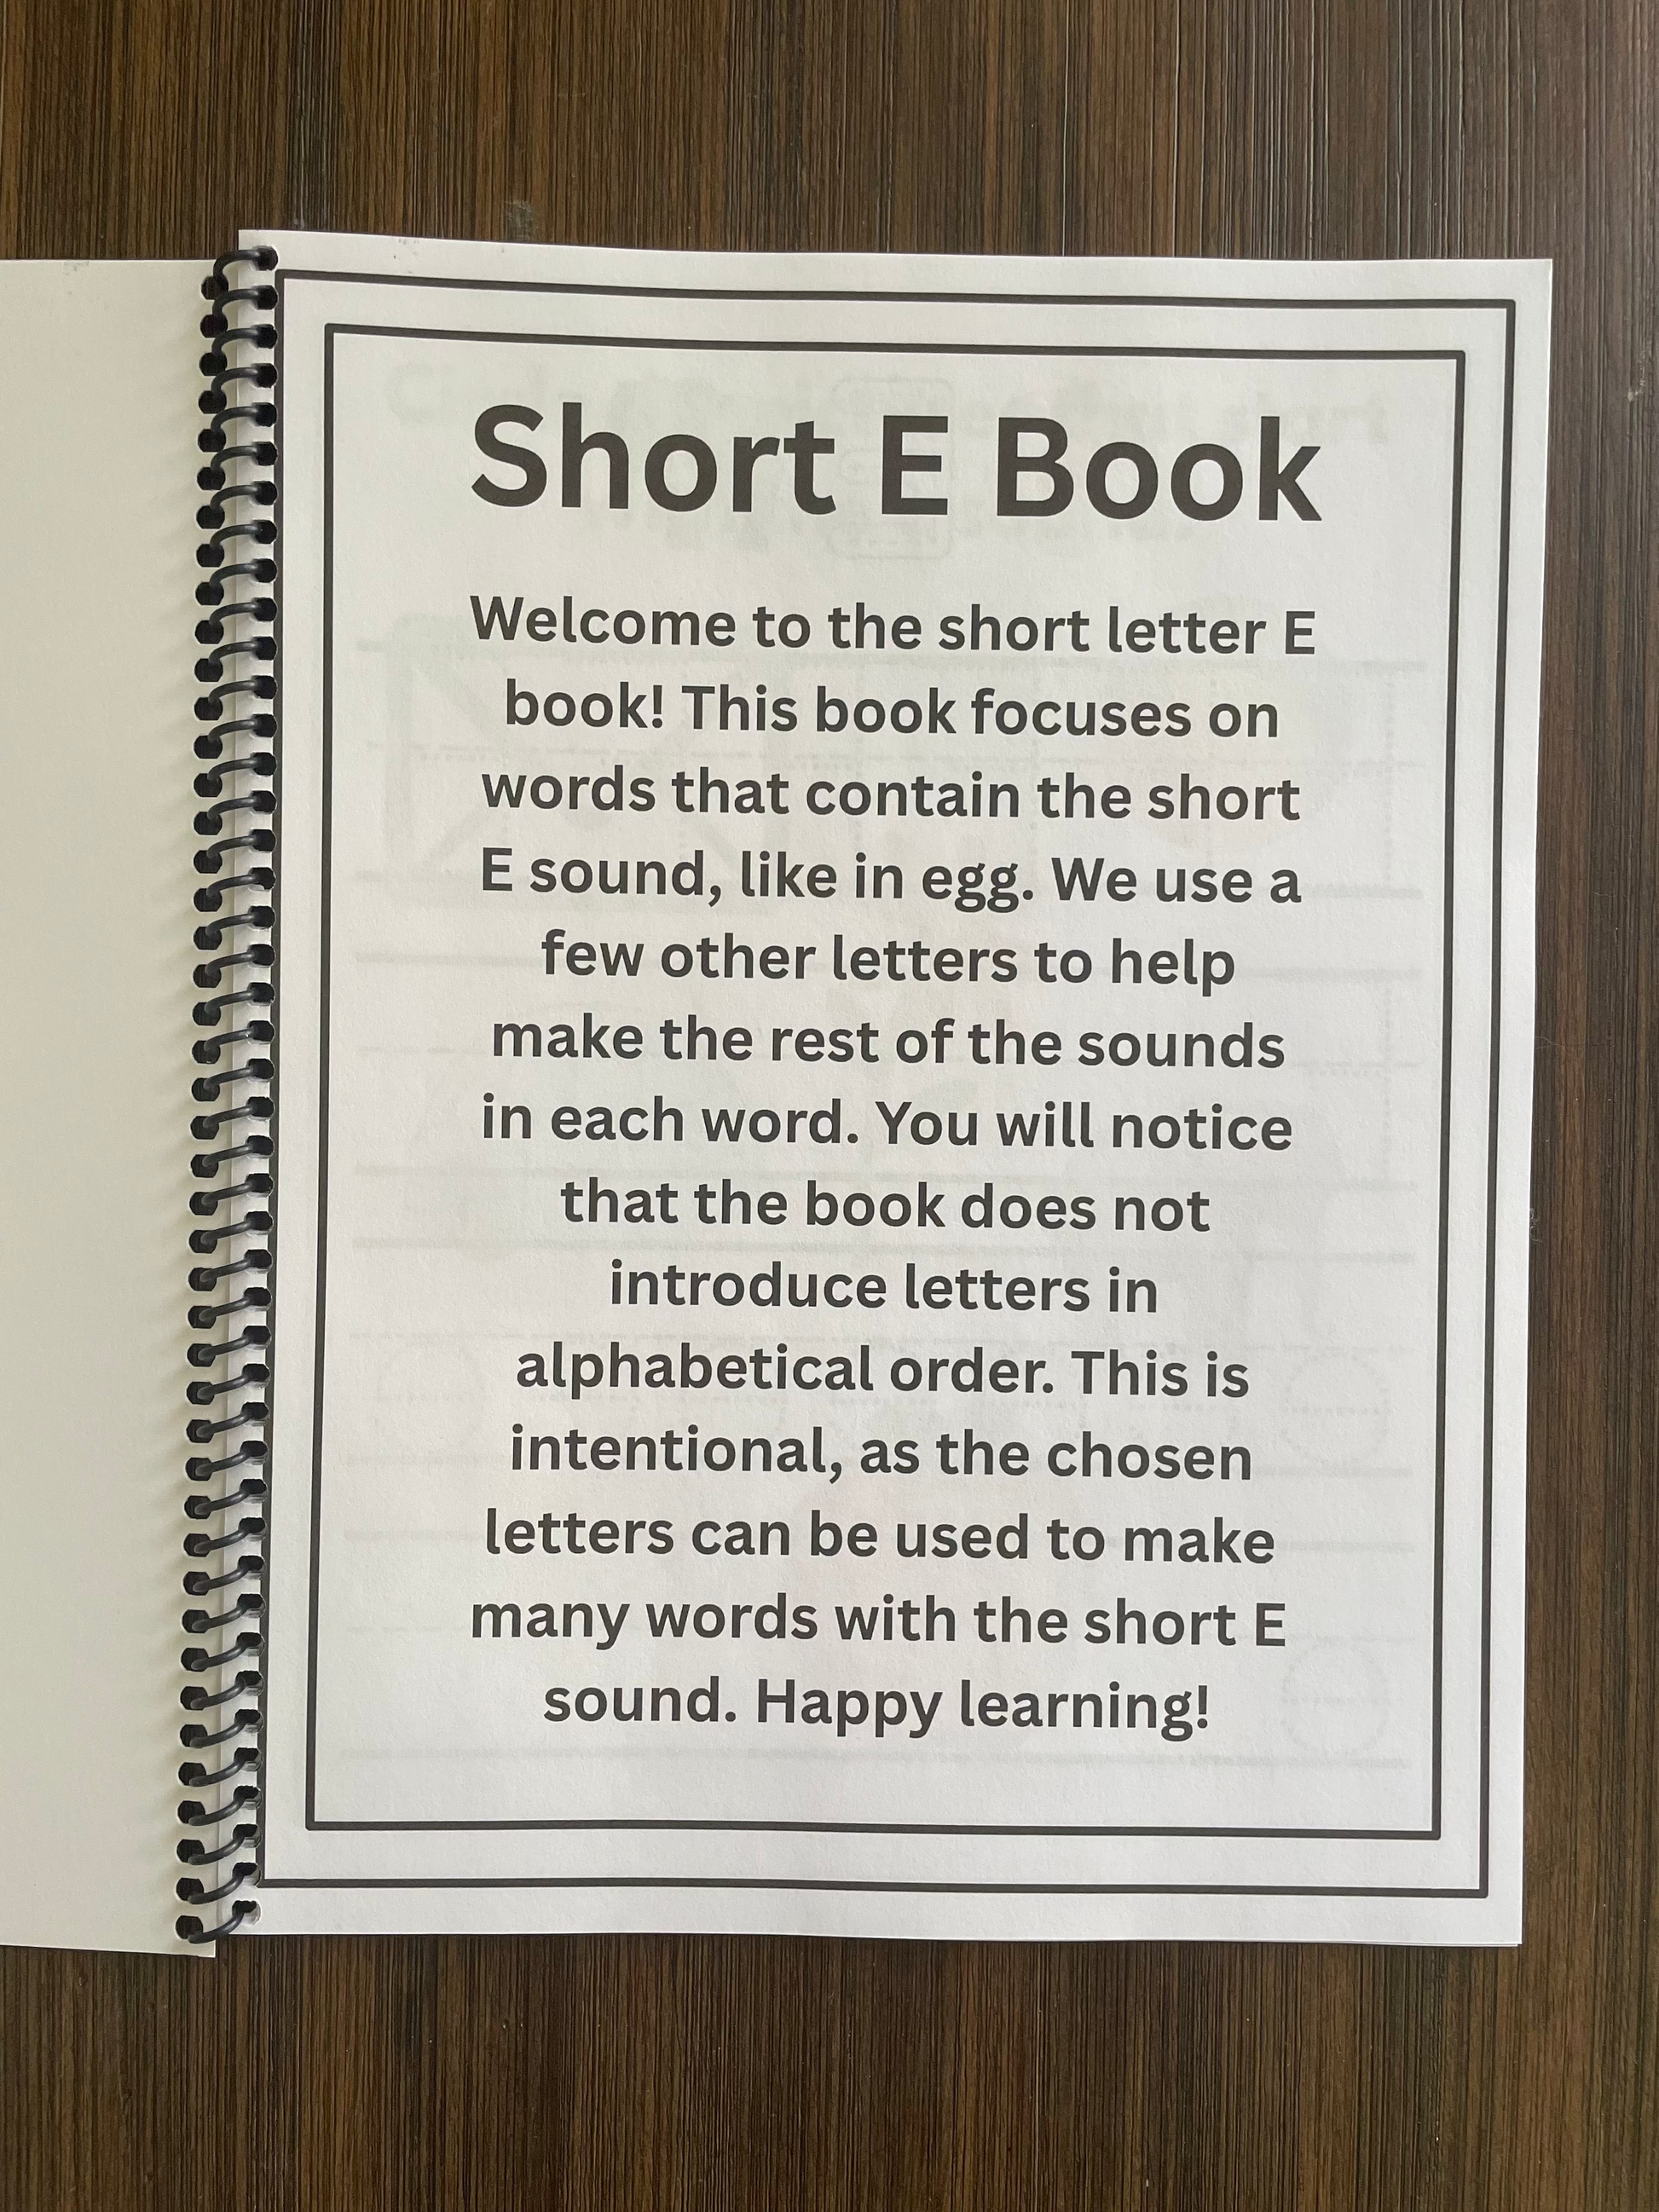 Short E Book
Welcome to the short letter E
book! This book focuses on
words that contain the short
E sound, like in egg. We use a
few other letters to help
make the rest of the sounds
in each word. You will notice
that the book does not
introduce letters in
alphabetical order. This is
intentional, as the chosen
letters can be used to make
many words with the short E
sound. Happy learning!